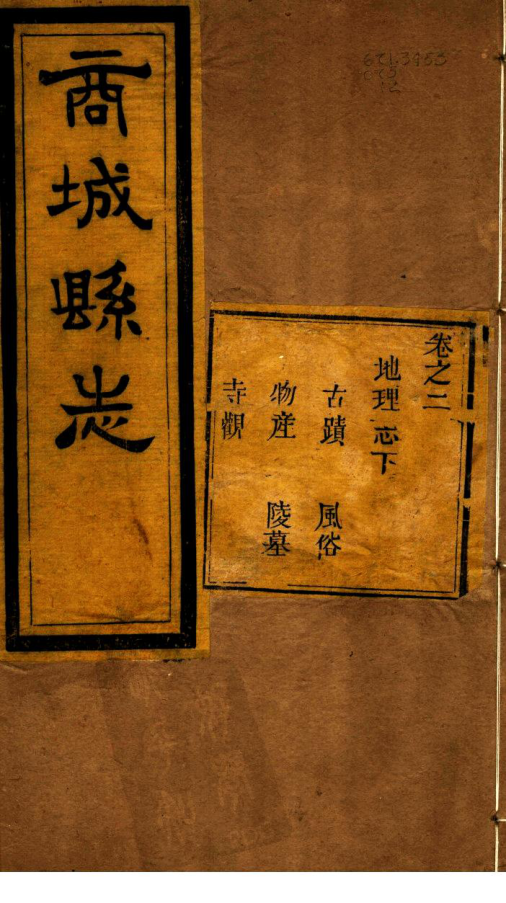 商城縣志
卷之二
地理志下
古蹟 風俗
物産 陵墓
寺觀